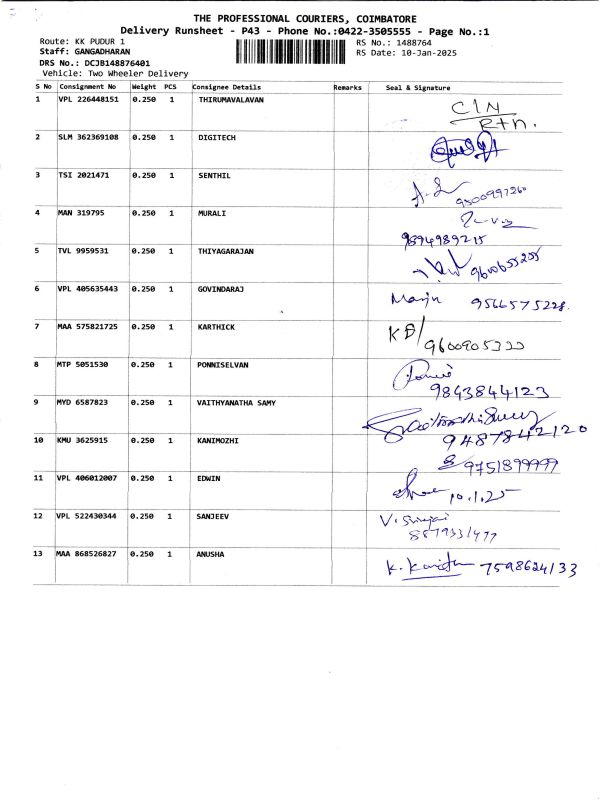 THE PROFESSIONAL COURIERS, COIMBATORE
Delivery Runsheet - P43 - Phone No.:0422-3505555 - Page No.:1
Route: KK PUDUR 1 RS No.: 1488764
Staff: GANGADHARAN RS Date: 10-Jan-2025
DRS No.: DCJB148876401
Vehicle: Two Wheeler Delivery
S No Consignment No Weight PCS Consignee Details Remarks Seal & Signature
1 VPL 226448151 0.250 1 THIRUMAVALAVAN CIN
Rtn.
2 SLM 362369108 0.250 1 DIGITECH
3 TSI 2021471 0.250 1 SENTHIL
4 MAN 319795 0.250 1 MURALI
9894989215
5 TVL 9959531 0.250 1 THIYAGARAJAN 9600655255
6 VPL 405635443 0.250 1 GOVINDARAJ 9566575228.
7 MAA 575821725 0.250 1 KARTHICK KB/
9600905333
8 MTP 5051530 0.250 1 PONNISELVAN
9843844123
9 MYD 6587823 0.250 1 VAITHYANATHA SAMY
9487842120
10 KMU 3625915 0.250 1 KANIMOZHI
9751899999
11 VPL 406012007 0.250 1 EDWIN 10.1.25
12 VPL 522430344 0.250 1 SANJEEV
13 MAA 868526827 0.250 1 ANUSHA 7598624133